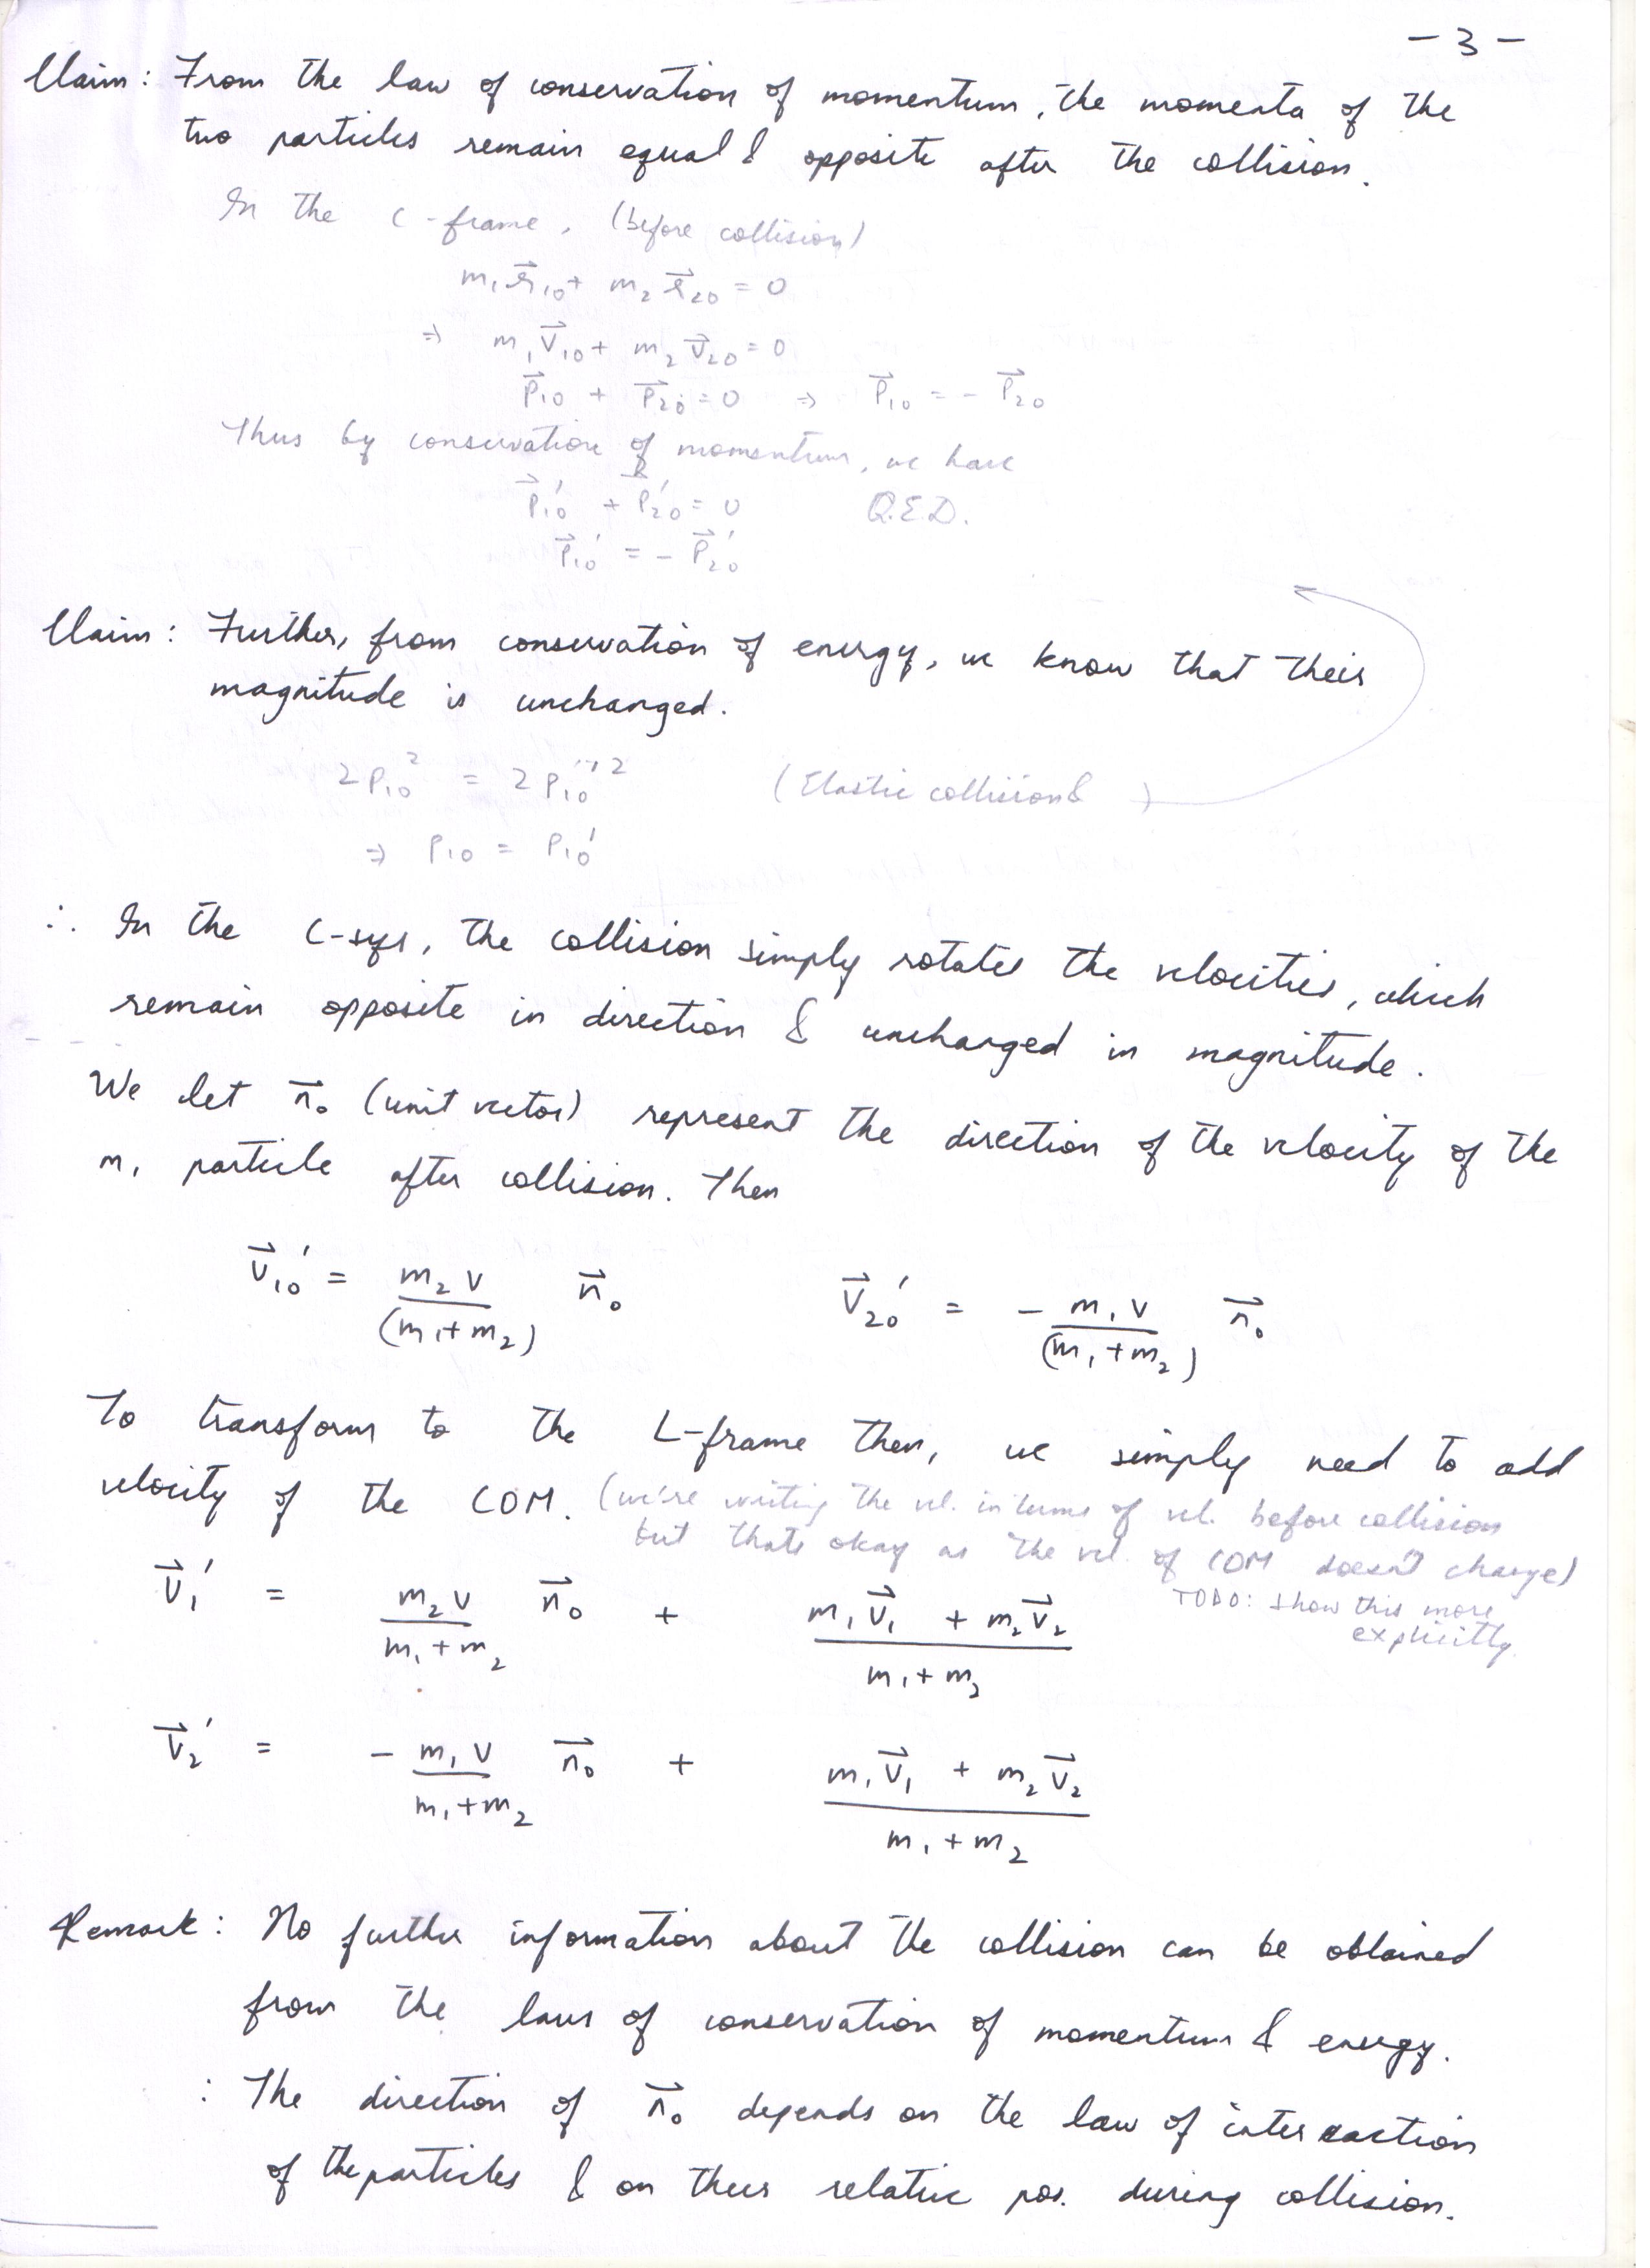 - 3 -
Claim: From the law of conservation of momentum, the momenta of the
two particles remain equal & opposite after the collision.
In the C-frame, (before collision)
m₁r⃗₁₀ + m₂r⃗₂₀ = 0
⇒ m₁v⃗₁₀ + m₂v⃗₂₀ = 0
p⃗₁₀ + p⃗₂₀ = 0 ⇒ p⃗₁₀ = - p⃗₂₀
Thus by conservation of momentum, we have
p⃗₁₀' + p⃗₂₀' = 0 Q.E.D.
p⃗₁₀' = - p⃗₂₀'
Claim: Further, from conservation of energy, we know that their
magnitude is unchanged.
2p₁₀² = 2p₁₀'² (Elastic collision & )
⇒ p₁₀ = p₁₀'
∴ In the C-sys, the collision simply rotates the velocities, which
remain opposite in direction & unchanged in magnitude.
We let n⃗₀ (unit vector) represent the direction of the velocity of the
m₁ particle after collision. Then
v⃗₁₀' = m₂v/(m₁+m₂) n⃗₀ v⃗₂₀' = - m₁v/(m₁+m₂) n⃗₀
To transform to the L-frame then, we simply need to add
velocity of the COM. (we're writing the vel. in terms of vel. before collision
but thats okay as the vel. of COM doesn't change)
TODO: show this more
explicitly.
v⃗₁' = m₂v/(m₁+m₂) n⃗₀ + (m₁v⃗₁ + m₂v⃗₂)/(m₁+m₂)
v⃗₂' = - m₁v/(m₁+m₂) n⃗₀ + (m₁v⃗₁ + m₂v⃗₂)/(m₁+m₂)
Remark: No further information about the collision can be obtained
from the laws of conservation of momentum & energy.
: The direction of n⃗₀ depends on the law of interaction
of the particles & on their relative pos. during collision.